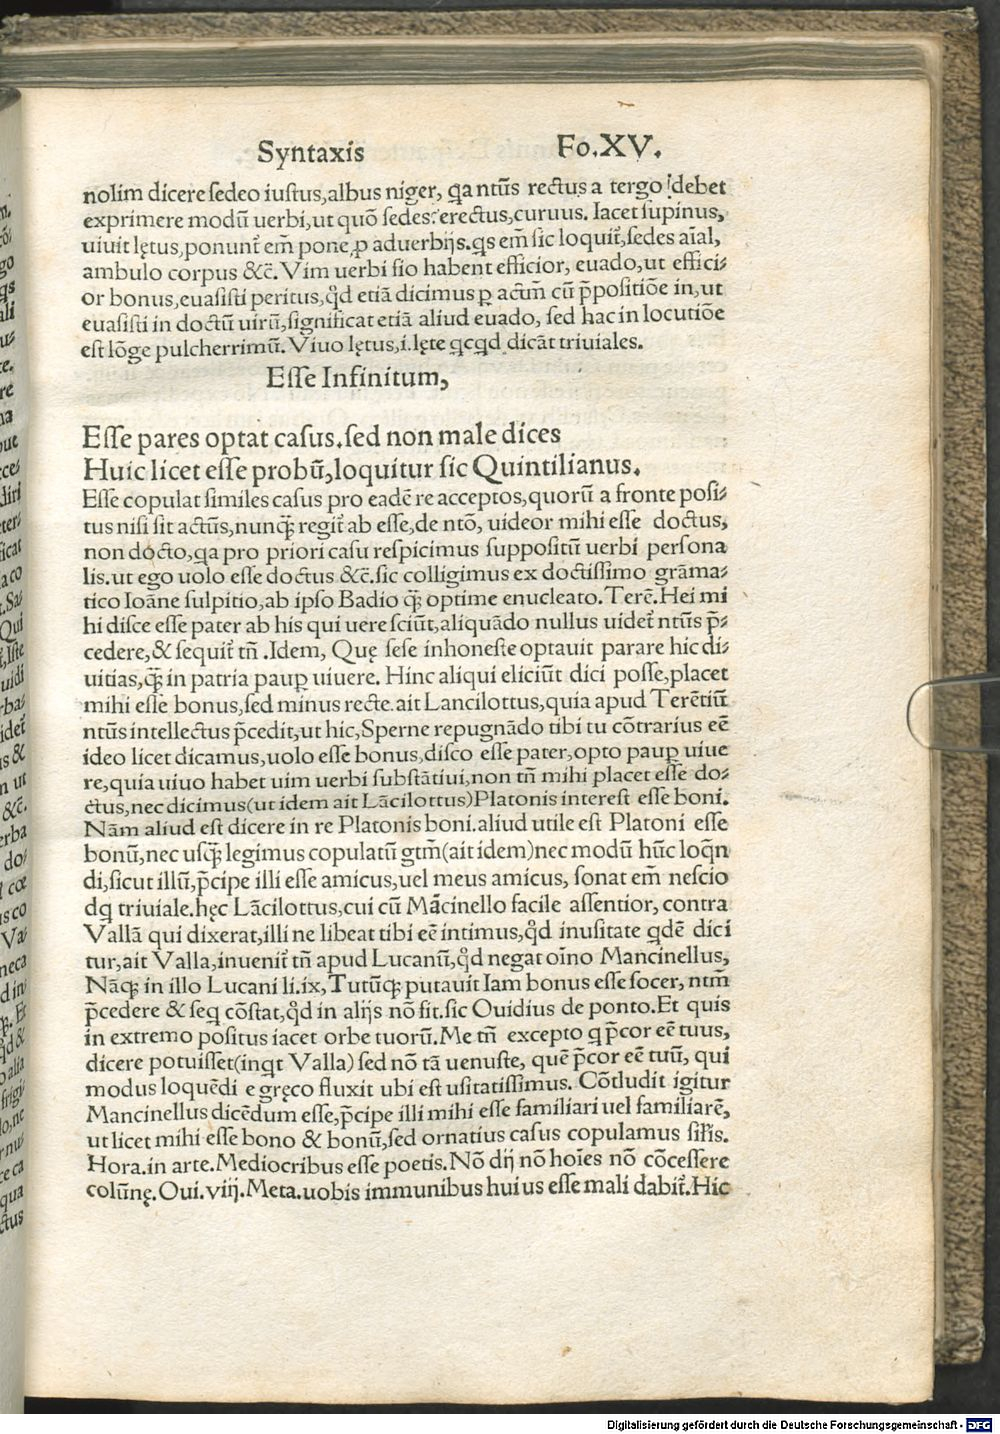 Syntaxis Fo.XV.
nolim dicere sedeo iustus,albus niger, qa ntūs rectus a tergo debet
exprimere modū uerbi,ut quō sedes:erectus,curuus. Iacet supinus,
uiuit lętus,ponunt̃ em̃ pone ꝓ aduerbijs.qs em̃ sic loquit̃,sedes aīal,
ambulo corpus &c̃.Vim uerbi fio habent efficior, euado,ut effici⸗
or bonus,euasisti peritus,qd̉ etiā dicimus ꝑ actm̃ cū p̃positiōe in,ut
euasisti in doctū uirū,significat etiā aliud euado, sed hac in locutiōe
est lōge pulcherrimū.Viuo lętus,i.lęte qcqd dicāt triuiales.
Esse Infinitum,
Esse pares optat casus.sed non male dices
Huic licet esse probū,loquitur sic Quintilianus.
Esse copulat similes casus pro eadē re acceptos,quorū a fronte posi⸗
tus nisi sit actūs,nunꝙ̃ regit̃ ab esse,de ntō, uideor mihi esse doctus,
non docto,qa pro priori casu respicimus suppositū uerbi persona
lis.ut ego uolo esse doctus &c̃.sic colligimus ex doctissimo grāma⸗
tico Ioāne sulpitio,ab ipso Badio ꝙ̃ optime enucleato.Terē.Hei mi
hi disce esse pater ab his qui uere sciūt,aliquādo nullus uidet̃ ntūs p̃⸗
cedere,& sequit̃ tñ .Idem, Quę sese inhoneste optauit parare hic di⸗
uitias,ꝙ̃ in patria pauꝑ uiuere. Hinc aliqui eliciūt dici posse,placet
mihi esse bonus,sed minus recte.ait Lancilottus,quia apud Terētiū
ntūs intellectus p̃cedit,ut hic,Sperne repugnādo tibi tu cōtrarius eē
ideo licet dicamus,uolo esse bonus,disco esse pater,opto pauꝑ uiue
re,quia uiuo habet uim uerbi substātiui,non tñ mihi placet esse do⸗
ctus,nec dicimus(ut idem ait Lācilottus)Platonis interest esse boni.
Nām aliud est dicere in re Platonis boni.aliud utile est Platoni esse
bonū,nec usꝙ̃ legimus copulatū gtm̃(ait idem)nec modū hūc loqn̄
di,sicut illū,p̃cipe illi esse amicus,uel meus amicus, sonat em̃ nescio
qd triuiale.hęc Lācilottus,cui cū Mācinello facile assentior, contra
Vallā qui dixerat,illi ne libeat tibi eē intimus,qd̉ inusitate qdē dici
tur,ait Valla,inuenit̃ tñ apud Lucanū,qd̉ negat oīno Mancinellus,
Nāꝙ in illo Lucani li.ix,Tutūꝙ putauit Iam bonus esse socer, ntm̃
p̃cedere & seq cōstat,qd̉ in alijs nō fit.sic Ouidius de ponto.Et quis
in extremo positus iacet orbe tuorū.Me tñ excepto q p̃cor eē tuus,
dicere potuisset(inqt Valla) sed nō tā uenuste, quē p̃cor eē tuū, qui
modus loquēdi e gręco fluxit ubi est usitatissimus. Cōtludit igitur
Mancinellus dicēdum esse,p̃cipe illi mihi esse familiari uel familiarē,
ut licet mihi esse bono & bonū,sed ornatius casus copulamus sil̃is.
Hora.in arte.Mediocribus esse poetis.Nō dij nō hoīes nō cōcessere
colūnę.Oui.viij.Meta.uobis immunibus huius esse mali dabit̃.Hic
Digitalisierung gefördert durch die Deutsche Forschungsgemeinschaft - DFG